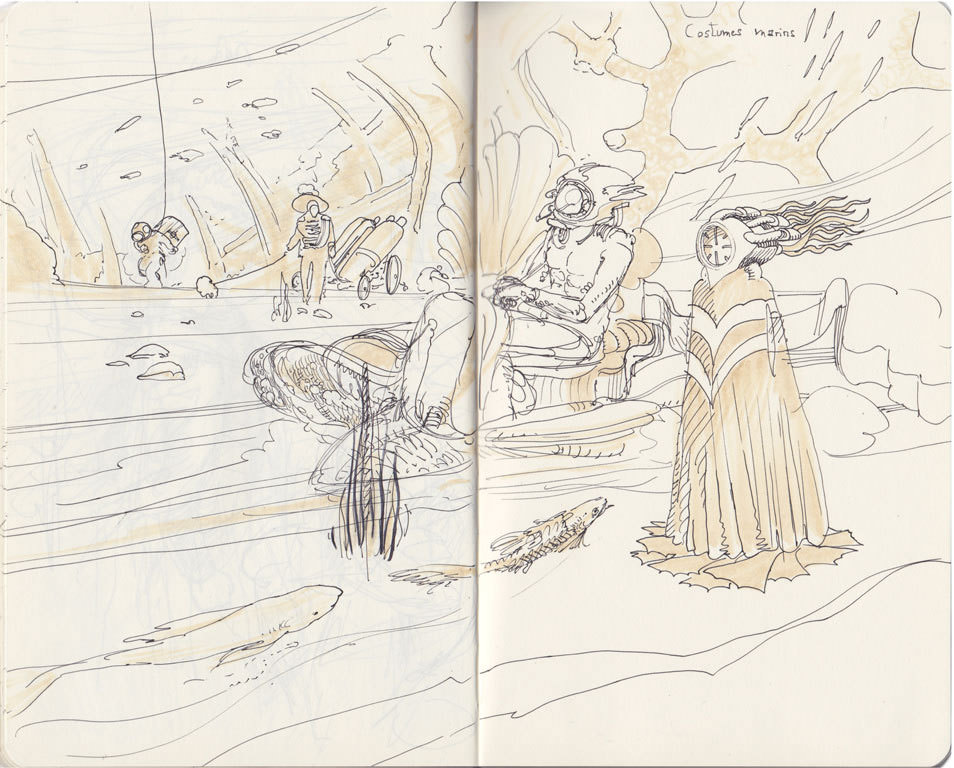 Costumes marins